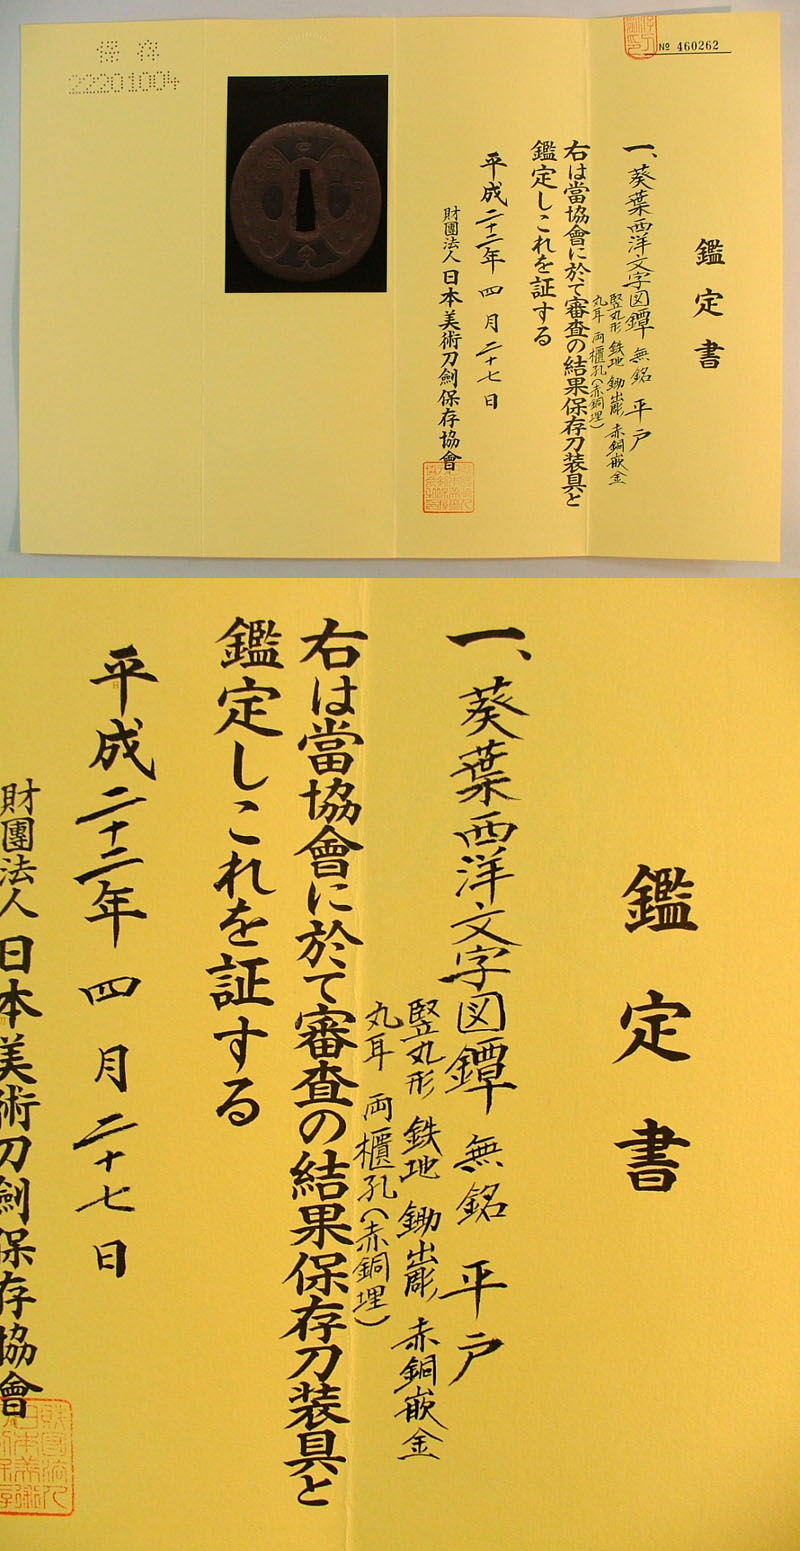 保存
22201004
№ 460262
鑑定書
一、葵葉西洋文字図鐔 無銘 平戸
竪丸形 鉄地 鋤出彫 赤銅嵌金
丸耳 両櫃孔(赤銅埋)
右は當協會に於て審査の結果保存刀装具と
鑑定しこれを証する
平成二十二年 四月二十七日
財團法人 日本美術刀劍保存協會
鑑定書
一、葵葉西洋文字図鐔 無銘 平戸
竪丸形 鉄地 鋤出彫 赤銅嵌金
丸耳 両櫃孔(赤銅埋)
右は當協會に於て審査の結果保存刀装具と
鑑定しこれを証する
平成二十二年 四月二十七日
財團法人 日本美術刀劍保存協會